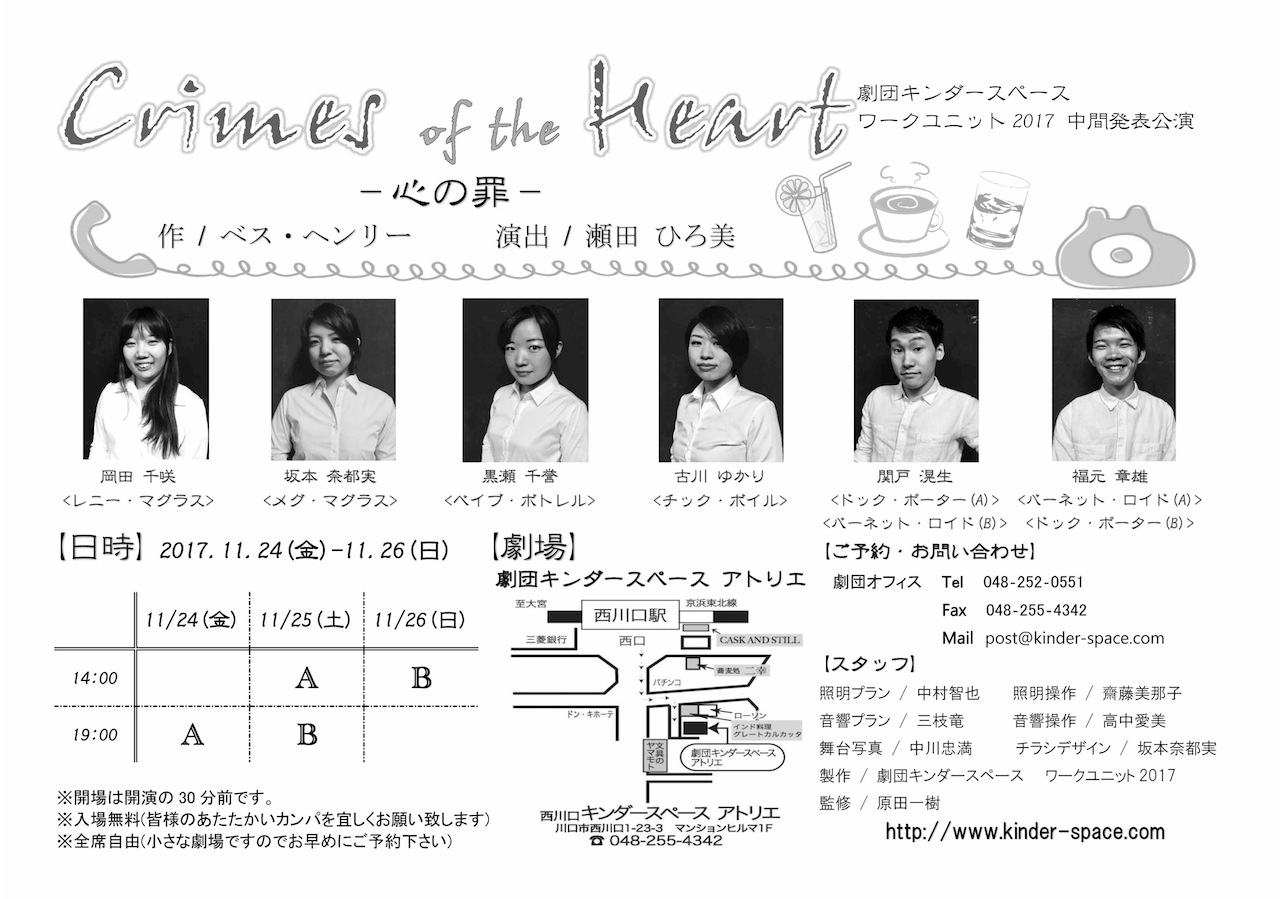 Crimes of the Heart
劇団キンダースペース
ワークユニット 2017 中間発表公演
－心の罪－
作 / ベス・ヘンリー 演出 / 瀬田 ひろ美
岡田 千咲
<レニー・マグラス>
坂本 奈都実
<メグ・マグラス>
黒瀬 千誉
<ベイブ・ボトレル>
古川 ゆかり
<チック・ボイル>
関戸 滉生
<ドック・ポーター(A)>
<バーネット・ロイド(B)>
福元 章雄
<バーネット・ロイド(A)>
<ドック・ポーター(B)>
【日時】 2017. 11. 24(金)−11. 26(日)
11/24(金) 11/25(土) 11/26(日)
14:00 A B
19:00 A B
※開場は開演の30分前です。
※入場無料(皆様のあたたかいカンパを宜しくお願い致します)
※全席自由(小さな劇場ですのでお早めにご予約下さい)
【劇場】
劇団キンダースペース アトリエ
至大宮
西川口駅
京浜東北線
三菱銀行
西口
CASK AND STILL
蕎麦処 二幸
パチンコ
ドン・キホーテ
ローソン
インド料理
グレートカルカッタ
文具の
ヤマモト
劇団キンダースペース
アトリエ
西川口 キンダースペース アトリエ
川口市西川口1-23-3 マンションヒルマ1F
☎ 048-255-4342
【ご予約・お問い合わせ】
劇団オフィス Tel 048-252-0551
Fax 048-255-4342
Mail post@kinder-space.com
【スタッフ】
照明プラン / 中村智也 照明操作 / 齋藤美那子
音響プラン / 三枝竜 音響操作 / 高中愛美
舞台写真 / 中川忠満 チラシデザイン / 坂本奈都実
製作 / 劇団キンダースペース ワークユニット2017
監修 / 原田一樹
http://www.kinder-space.com